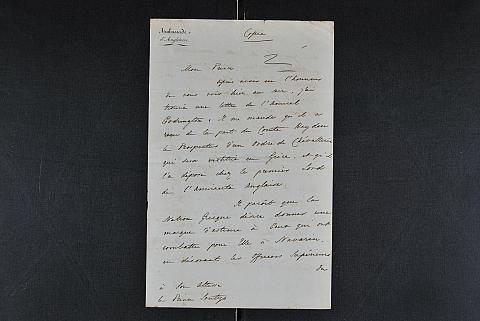 Ambassade
d'Angleterre.
Copie
Mon Prince
après avoir eu l'honneur
de vous voir hier au soir, j'ai
trouvé une lettre de l'amiral
Codrington, il me mande qu'il a
reçu de la part du Comte Heyden
le Prospectus d'un ordre de Chevallerie
qui sera institué en Grèce, et qu'il
l'a déposé chez le premier Lord
de l'Amirauté Anglaise.
Il paroît que la
Nation Grecque désire donner une
marque d'estime à Ceux qui ont
combattu pour Elle à Navarin,
en décorant les Officiers Supérieurs
du
à Son Altesse
le Prince